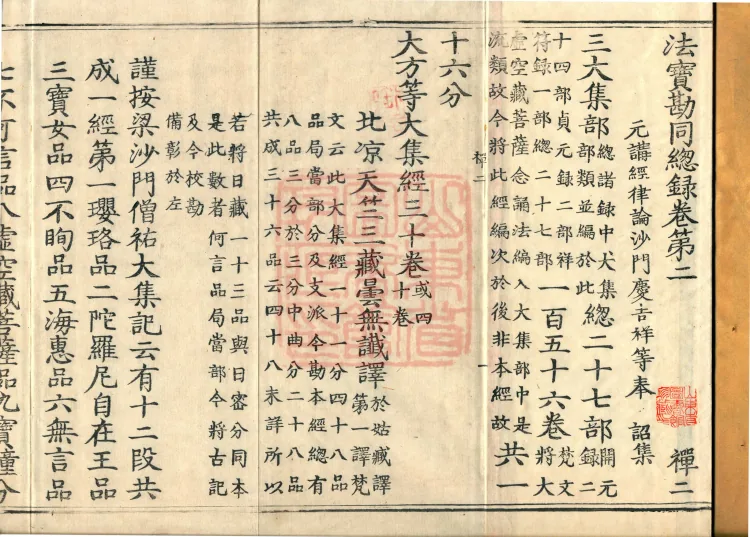 法寶勘同總錄卷第二 禪二
元講經律論沙門慶吉祥等奉 詔集
三大集部 總諸錄中大集部部類並編於此 總二十七部 開元錄二
十四部貞元錄二部祥符錄一部總二十七部 一百五十六卷 梵文將大
虛空藏菩薩念誦法編入大集部中是流類故今將此經編次於後非本經故 共一
十六分
禪二
大方等大集經三十卷 或四十卷
北凉天竺三藏曇無讖譯 於姑臧譯第一譯梵
文云此大集經一十一分四十八品
品局當部分及支派今勘本經總有
八品三分於三分中曲分二十八品
共成三十六品云四十八未詳所以
若將日藏一十三品與日密分同本
是此數者何言品局當部今將古記
及今校勘
備彰於左
謹按梁沙門僧祐大集記云有十二段共
成一經第一瓔珞品二陀羅尼自在王品
三寶女品四不眴品五海惠品六無言品
七不可言品八虛空藏菩薩品九寶幢分